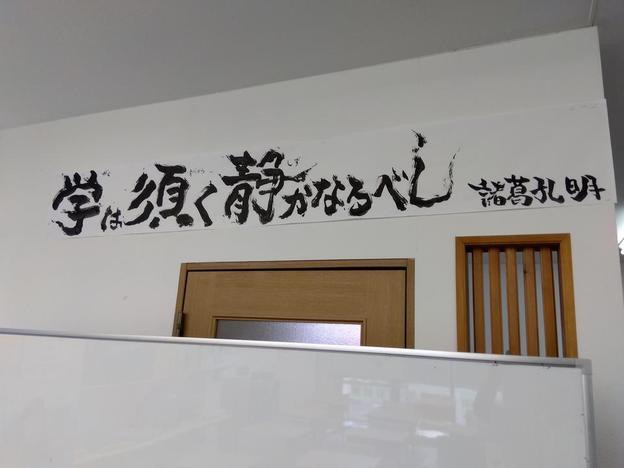 学は須く静かなるべし 諸葛孔明